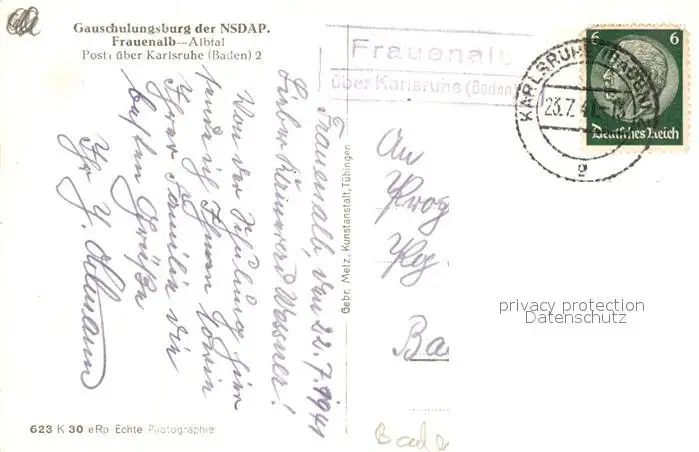 Gauschulungsburg der NSDAP.
Frauenalb—Albtal
Post: über Karlsruhe (Baden) 2
Frauenalb
über Karlsruhe (Baden)
KARLSRUHE (BADEN)
23.7.41
g
6 6
Deutsches Reich
Frauenalb, den 22.7.1941
Lieber Kamerad Wasner!
Von der Schulung hier
sende ich Ihnen sowie
Ihrer Familie die
besten Grüße
Ihr
Gebr. Metz, Kunstanstalt, Tübingen
An
Prog
Reg
Ba
Bade
privacy protection
Datenschutz
623 K 30 eRp Echte Photographie